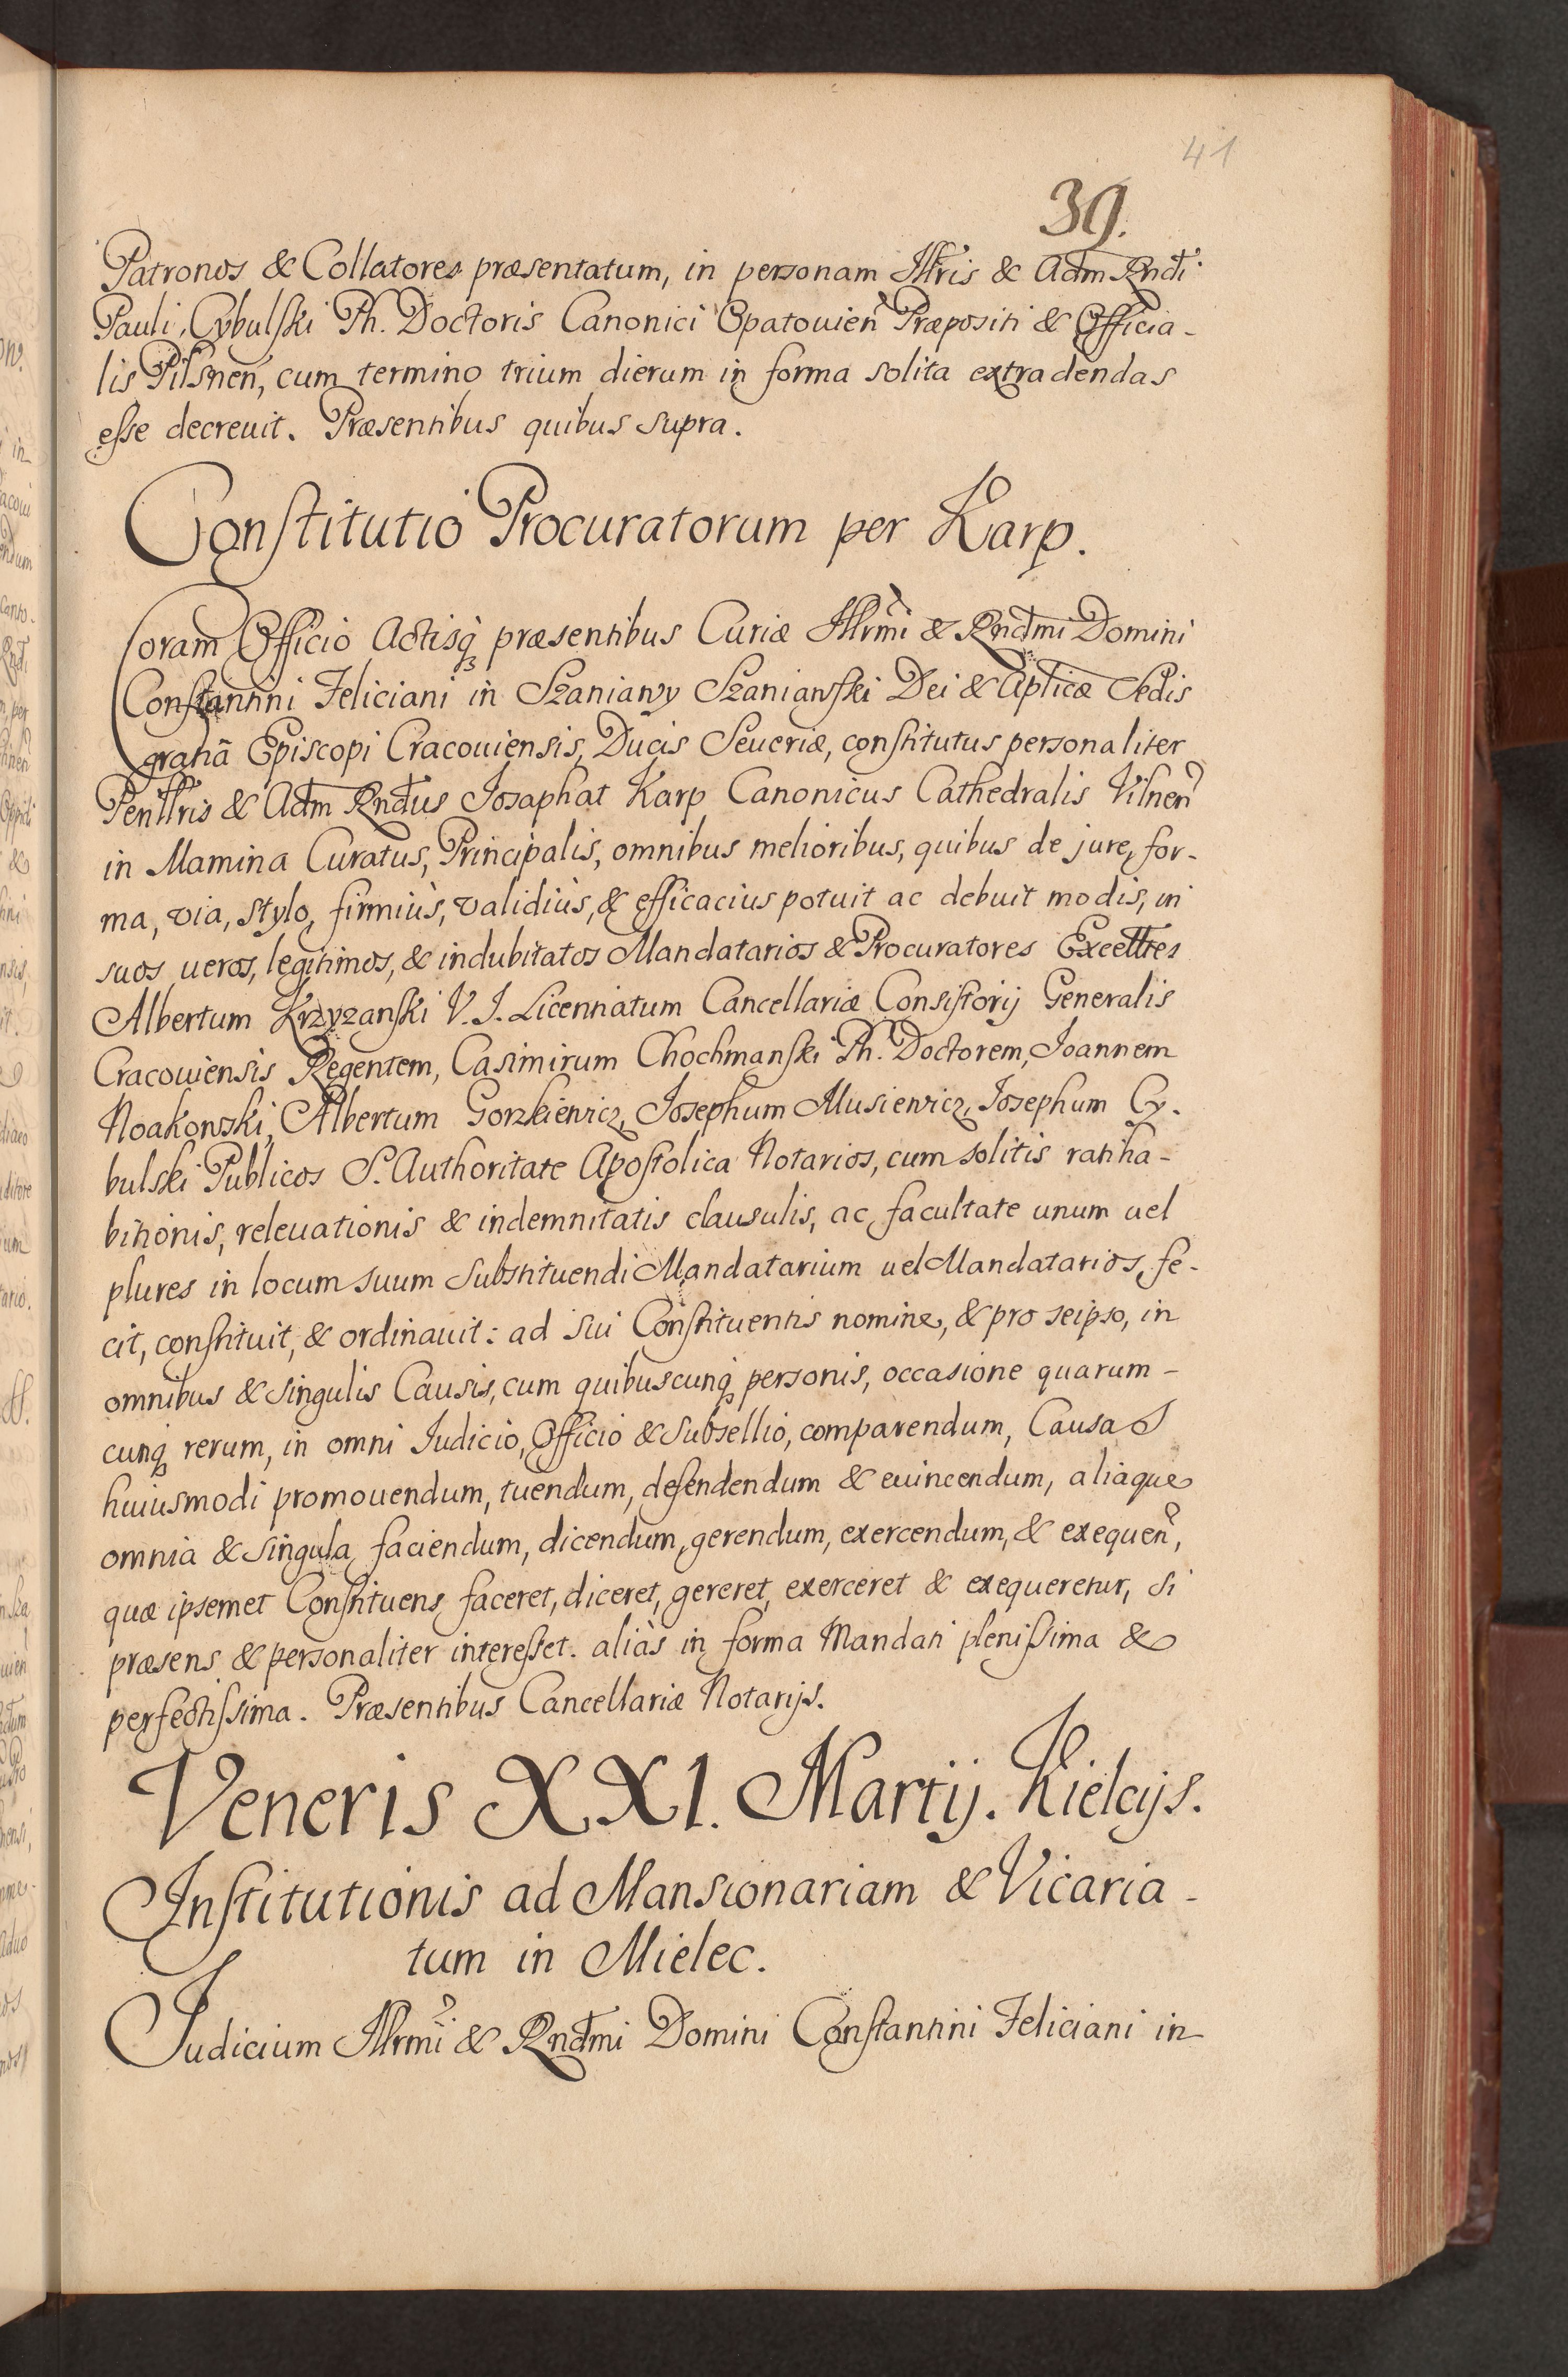 41
39.
Patronos & Collatores præsentatum, in personam Illris & Adm Rndi
Pauli Cybulski Ph. Doctoris Canonici Opatouien Præpositi & Officia-
lis Pilsnen, cum termino trium dierum in forma solita extradendas
esse decreuit. Præsentibus quibus supra.
Constitutio Procuratorum per Karp.
Coram Officio Actisq præsentibus Curiæ Illrmi & Rndmi Domini
Constantini Feliciani in Szaniawy Szaniawski Dei & Aplicæ Sedis
gratiâ Episcopi Cracouiensis, Ducis Seueriæ, constitutus personaliter
Perillris & Adm Rndus Josaphat Karp Canonicus Cathedralis Vilnen
in Mamina Curatus, Principalis, omnibus melioribus, quibus de jure, for-
ma, via, stylo, firmiùs, validiùs, & efficacius potuit ac debuit modis, in
suos ueros, legitimos, & indubitatos Mandatarios & Procuratores Excelltres
Albertum Krzyzanski V. J. Licentiatum Cancellariæ Consistorij Generalis
Cracouiensis Regentem, Casimirum Chochmanski Ph. Doctorem, Joannem
Noakowski, Albertum Gorzkiewicz, Josephum Musiewicz, Josephum Cy-
bulski Publicos S. Authoritate Apostolica Notarios, cum solitis ratiha-
bitionis, releuationis & indemnitatis clausulis, ac facultate unum uel
plures in locum suum substituendi Mandatarium uel Mandatarios, fe-
cit, constituit, & ordinauit: ad sui Constituentis nomine, & pro seipso, in
omnibus & singulis Causis, cum quibuscunq personis, occasione quarum-
cunq rerum, in omni Judicio, Officio & Subsellio, comparendum, Causas
huiusmodi promouendum, tuendum, defendendum & euincendum, aliaque
omnia & singula faciendum, dicendum, gerendum, exercendum, & exequen,
quæ ipsemet Constituens faceret, diceret, gereret, exerceret & exequeretur, si
præsens & personaliter interesset. aliàs in forma Mandati plenissima &
perfectissima. Præsentibus Cancellariæ Notarijs.
Veneris XXI. Martij. Kielcijs.
Institutionis ad Mansionariam & Vicaria-
tum in Mielec.
Judicium Illrmi & Rndmi Domini Constantini Feliciani in